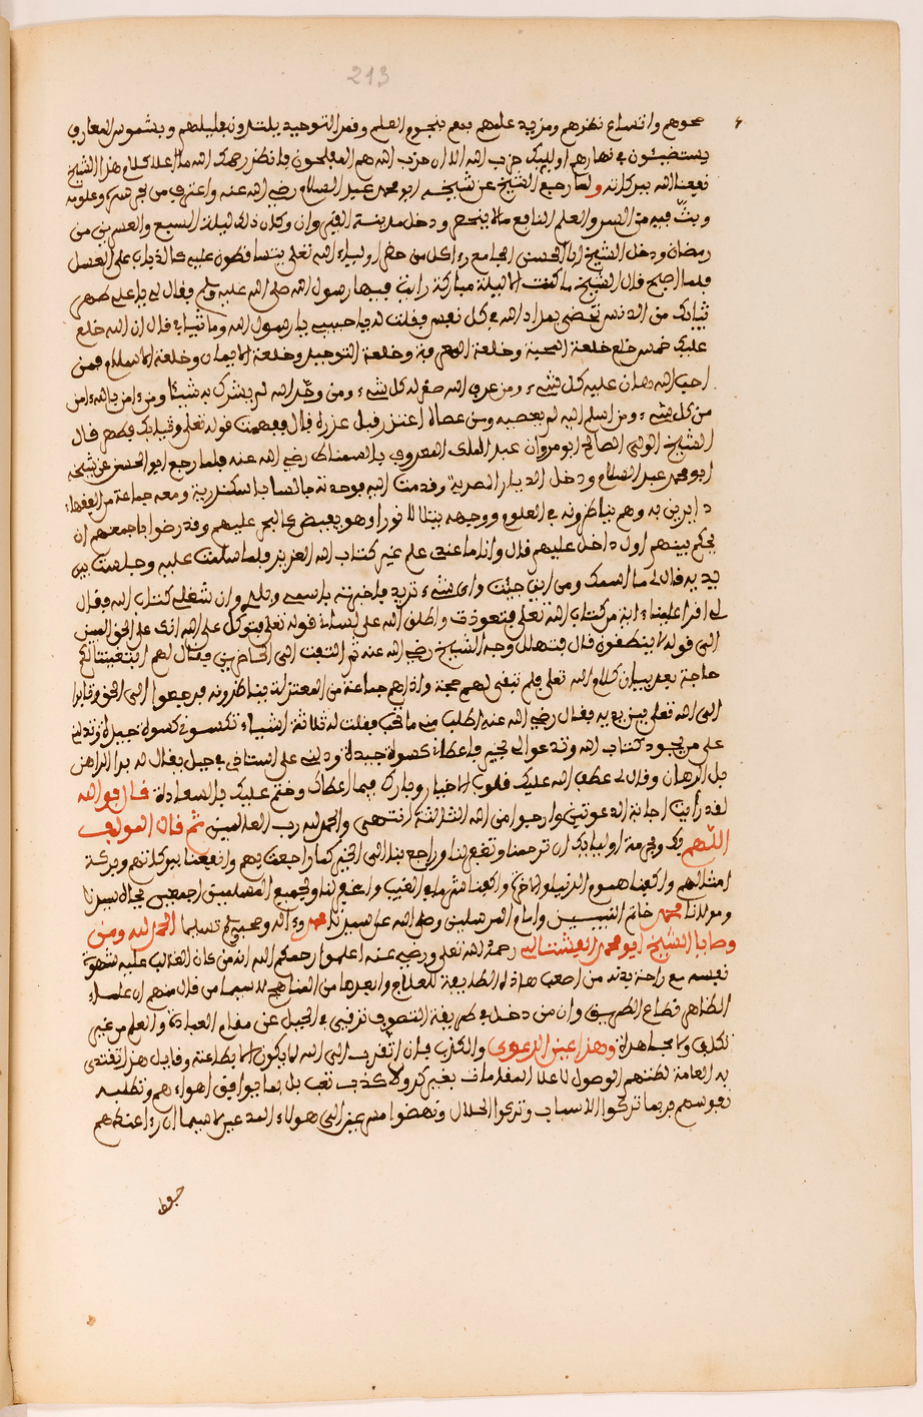 213
صحوهم واتساع نظرهم ومزيد علمهم بهم بنجوم العلم وقمر التوحيد يهتدون في ليلهم وبشموس المعارف
يستضيئون في نهارهم اوليك حزب الله الا ان حزب الله هم المفلحون فانظر رحمك الله ما اعلا كلام هذا الشيخ
نفعنا الله ببركاته ولما رجع الشيخ عن شيخه ابو محمد عبد السلام رضي الله عنه واغترف من بحر سره وعلومه
وبث فيه من السر والعلم النافع ما لا ينحصر ودخل مدينة القيروان وكان ذلك ليلة السبع والعشرين من
رمضان ودخل الشيخ ابا الحسن الجامع راى كل من حضر اولياء الله تعلى يتساقطون عليه كالذباب على العسل
فلما اصبح قال الشيخ ما كانت الا ليلة مباركة رايت فيها رسول الله صلى الله عليه وسلم فقال لي يا علي طهر
ثيابك من الدنس تحضى بمداد الله في كل نفس فقلت له يا حبيبي يا رسول الله وما ثيابي قال ان الله خلع
عليك خمس خلع خلعة المحبة وخلعة المعرفة وخلعة التوحيد وخلعة الايمان وخلعة الاسلام فمن
احب الله هان عليه كل شيء ومن عرف الله صغر له كل شيء ومن وحد الله لم يشرك به شيئا ومن ءامن بالله امن
من كل شيء ومن اسلم لله لم يعصيه ومن عصاه اعتذر قبل عذره قال ففهمت قوله تعلى وثيابك فطهر قال
الشيخ الولي الصالح ابو مروان عبد الملك المعروف بالسمناط رضي الله عنه فلما رجع ابو الحسن عن شيخه
ابو محمد عبد السلام ودخل الديار المصرية وقدمت اليه فوجدته جالسا باسكندرية ومعه جماعة من الفقهاء
دايرين به وهم يناظرونه في العلوم ووجهه يتلالا نورا وهو يفيض كالبحر عليهم وقد رضوا باجمعهم ان
يحكم بينهم اول داخل عليهم قال وانا ما عندي علم غير كتاب الله العزيز فلما سلمت عليه وجلست بين
يديه قال لي ما اسمك ومن اين جيت واي شيء تريد فاخبرته باسمي وبلدي وان شغلي كتاب الله فقال
لي اقرا علينا ءاية من كتاب الله تعلى فتعوذت واطلق الله على لساني قوله تعلى فتوكل على الله انك على الحق المبين
الى قوله لا ينطقون قال فتهلل وجه الشيخ رضي الله عنه ثم التفت الى الحاضرين فقال لهم ابقيت لكم
حاجة بعد بيان كلام الله تعلى فلم تبقى لهم حجة واذا هم جماعة من المعتزلة يناظرونه فرجعوا الى الحق وتابوا
الى الله تعلى بين يديه فقال رضي الله عنه اطلب مني ما تحب فقلت له ثلاثة اشياء تكسوني كسوة جيدة وتدلني
على من يجود كتاب الله وتدعوا لي بخير فاعطاني كسوة جيدة ودلني على استاذ في جبل يقال له برا الراهن
بل الرهان وقال لي عطف الله عليك قلوب الاخيار وبارك فيما اعطاك وختم عليك بالسعادة قال فوالله
لقد رايت اجابة الدعوتين وارجوا من الله الثالثة انتهى والحمد لله رب العالمين ثم قال المولف
اللهم بك وبحرمة اوليايك ان ترحمنا وتغفر لنا وراجع بنا الى الخير كما راجعت بهم وانفعنا ببركاتهم وبركة
امثالهم واكفنا هموم الدنيا والاخرة واكفنا شر ما في الغيب واغفر لنا ولجميع المسلمين اجمعين بجاه سيدنا
ومولانا محمد خاتم النبيين وامام المرسلين وصلى الله على سيدنا محمد وءاله وصحبه وسلم تسليما الحمد لله ومن
وصايا الشيخ ابو محمد الفشتالي رحمة الله تعلى ورضي عنه اعلموا رحمكم الله انه من كان الغالب عليه شهوة
نفسه مع راحة بدنه من اصعب هاذه الطريقة للعلاج وابعدها من المناهج لا سيما من قال منهم ان علماء
الظاهر قطاع الطريق وان من دخل في طريقة التصوف ترقى في الجبل عن مقام العبادة والعلم من غير
تكلف ولا مجاهدة وهذا عين الدعوى والكذب فان التقرب الى الله لا يكون الا بطاعته وقايل هذا تقتدى
به العامة لظنهم الوصول لاعلا المقامات بغير كد ولا كذب تعب بل بما يوافق اهواءهم وتطلبه
نفوسهم فربما تركوا الاسباب وتركوا الحلال ونهضوا مسرعين الى هولاء المدعين لا سيما ان راءا عندهم
حوط